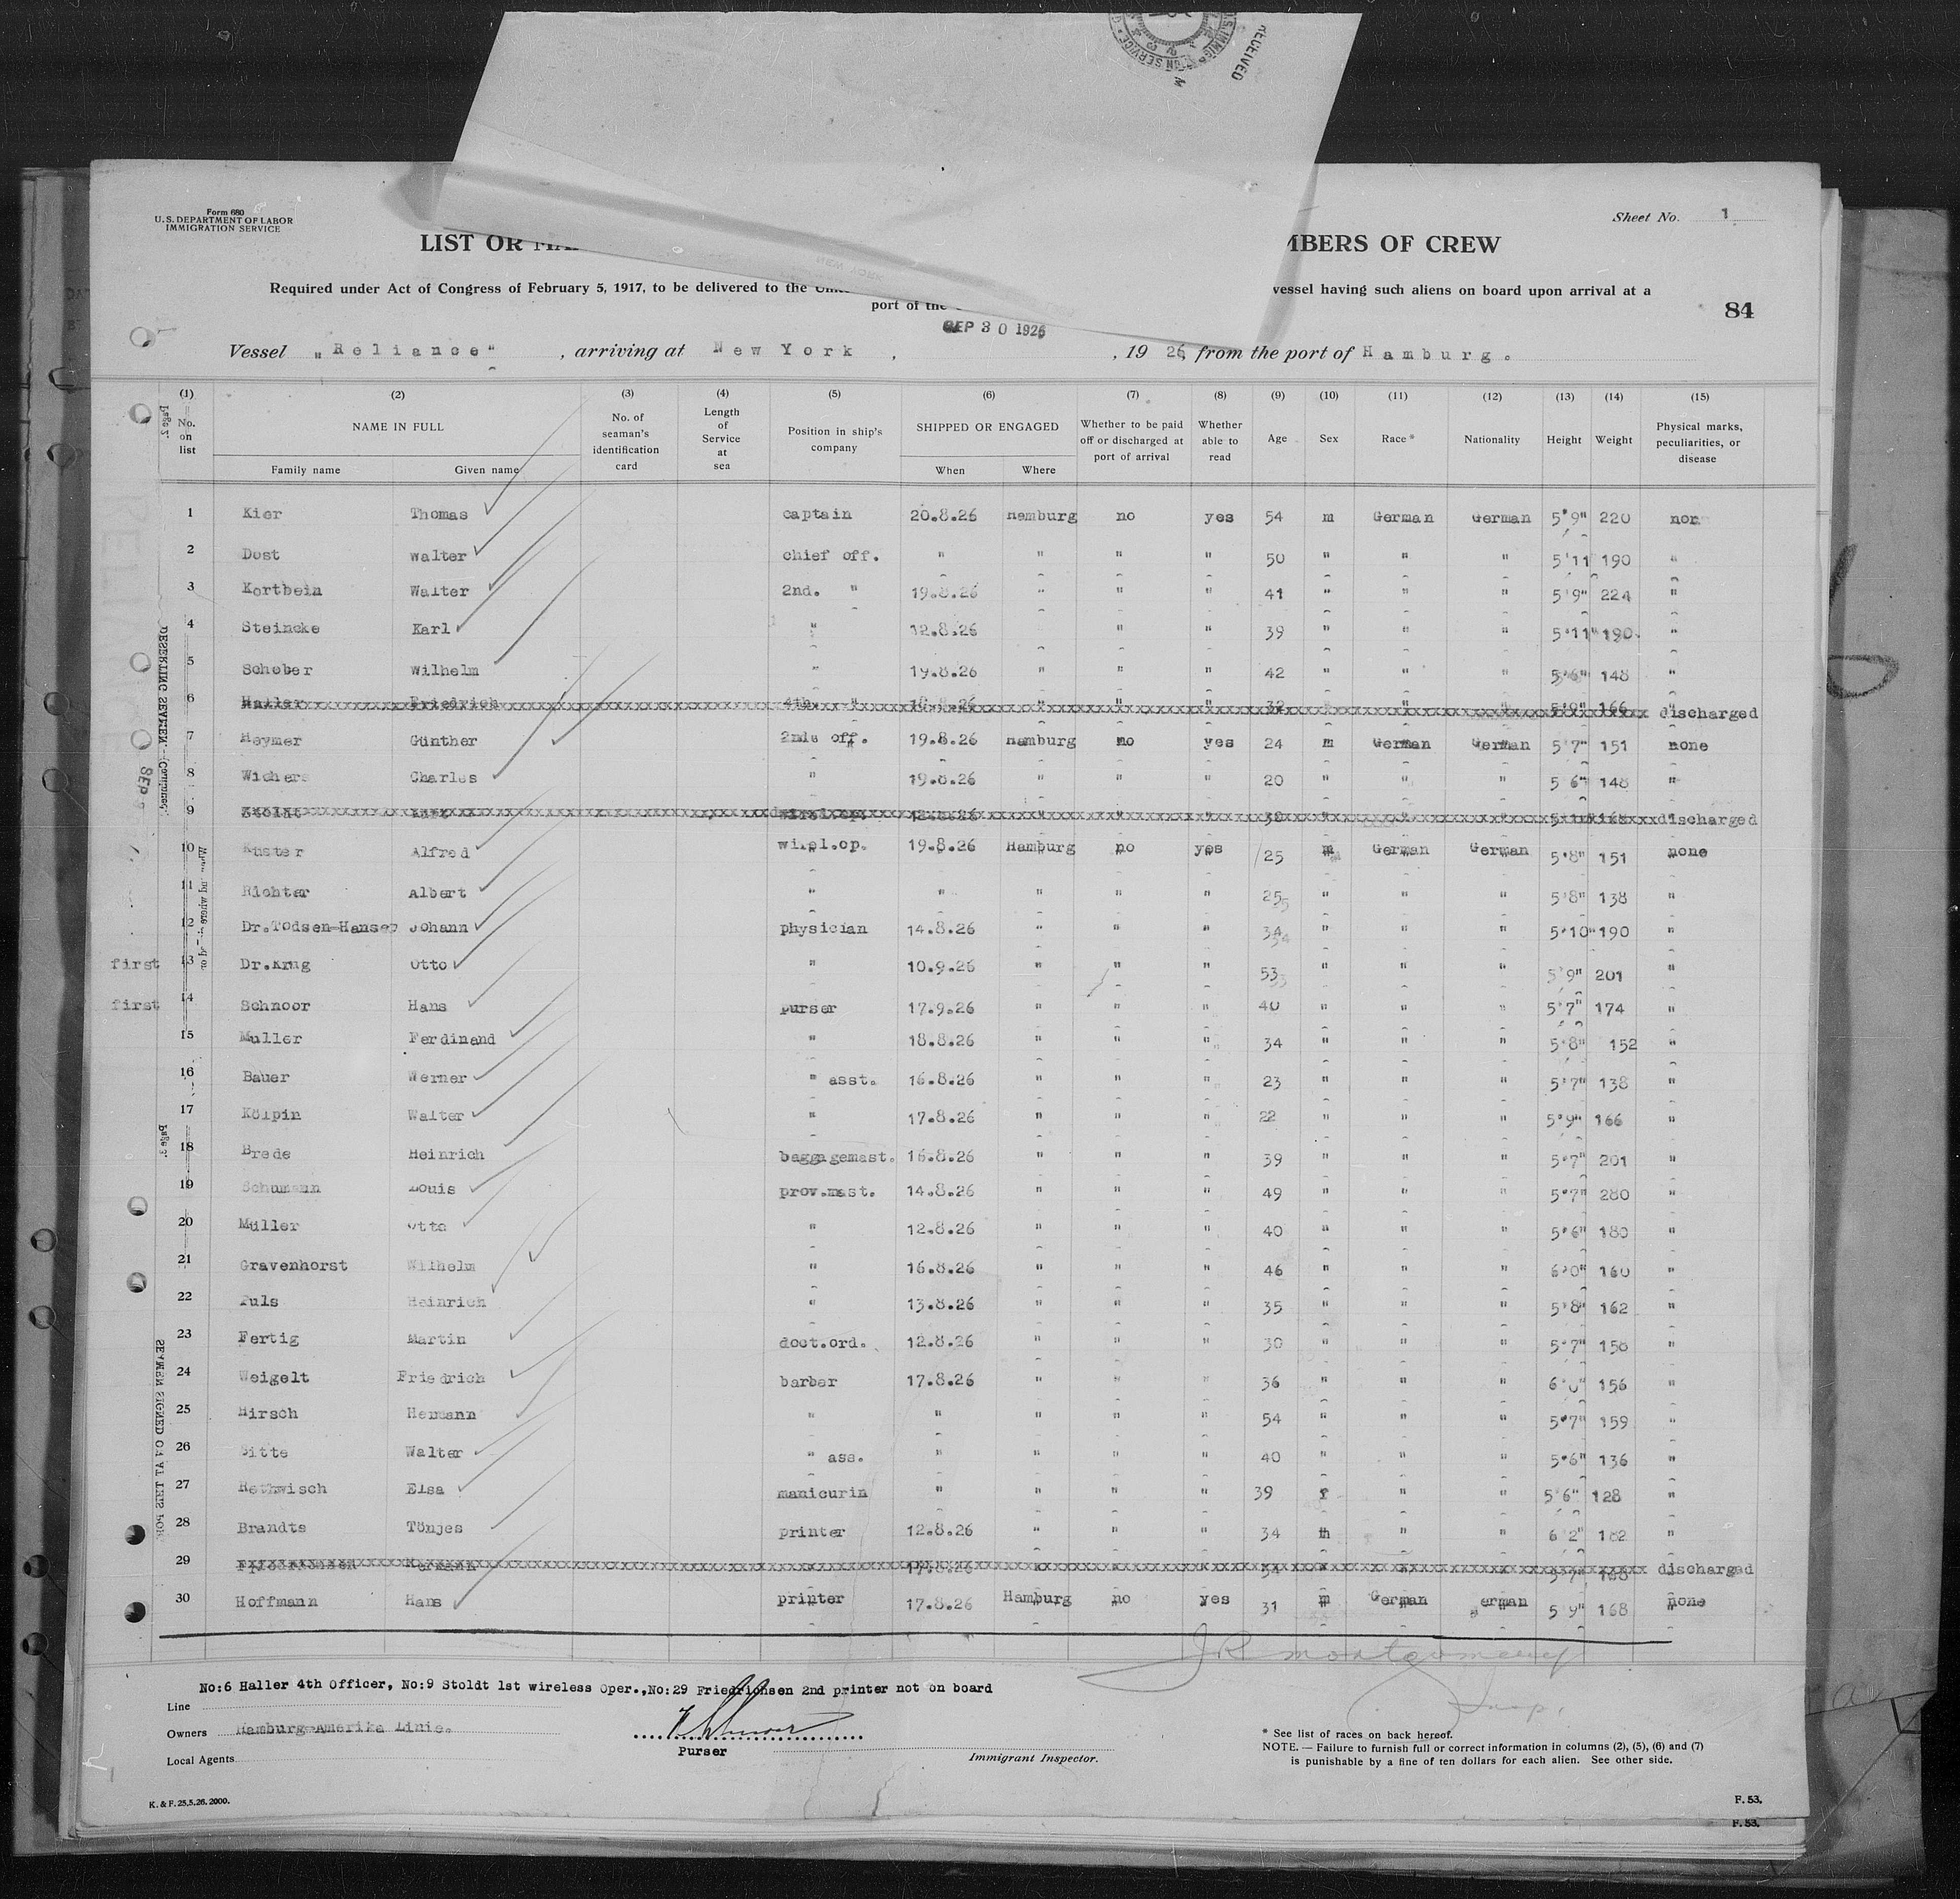 RECEIVED
Form 680
U.S. DEPARTMENT OF LABOR
IMMIGRATION SERVICE
Sheet No. 1
LIST OR MBERS OF CREW
Required under Act of Congress of February 5, 1917, to be delivered to the vessel having such aliens on board upon arrival at a
port of the
84
SEP 30 1926
Vessel „Reliance“, arriving at New York, , 1926, from the port of Hamburg.
(1) (2) (3) (4) (5) (6) (7) (8) (9) (10) (11) (12) (13) (14) (15)
No. on list NAME IN FULL No. of seaman's identification card Length of Service at sea Position in ship's company SHIPPED OR ENGAGED Whether to be paid off or discharged at port of arrival Whether able to read Age Sex Race* Nationality Height Weight Physical marks, peculiarities, or disease
Family name Given name When Where
1 Kier Thomas captain 20.8.26 Hamburg no yes 54 m German German 5'9" 220 non
2 Dost Walter chief off. " " " " 50 " " " 5'11 190 "
3 Kortbein Walter 2nd. " 19.8.26 " " " 41 " " " 5'9" 224 "
4 Steincke Karl " 12.8.26 " " " 39 " " " 5'11" 190. "
5 Schober Wilhelm " 19.8.26 " " " 42 " " " 5'6" 148 "
6 Haller Friedrich 4th. " " " " 32 " " " 5'9" 166 discharged
7 Heymer Günther off. 19.8.26 Hamburg no yes 24 m German German 5'7" 151 none
8 Wichers Charles " 19.8.26 " " " 20 " " " 5'6" 148 "
9 discharged
10 Alfred wirel.op. 19.8.26 Hamburg no yes 25 m German German 5'8" 151 none
11 Richter Albert " " " " " 25 " " " 5'8" 138 "
12 Dr.Todsen-Hansen Johann physician 14.8.26 " " " 34 " " " 5'10" 190 "
first 13 Dr.Krug Otto " 10.9.26 " " " 53 " " " 5'9" 201 "
first 14 Schnoor Hans purser 17.9.26 " " " 40 " " " 5'7" 174 "
15 Muller Ferdinand " 18.8.26 " " " 34 " " " 5'8" 152 "
16 Bauer Werner " asst. 16.8.26 " " " 23 " " " 5'7" 138 "
17 Kölpin Walter " 17.8.26 " " " 22 " " " 5'9" 166 "
18 Brede Heinrich baggagemast. 16.8.26 " " " 39 " " " 5'7" 201 "
19 Schumann Louis prov.mast. 14.8.26 " " " 49 " " " 5'7" 280 "
20 Müller Otto " 12.8.26 " " " 40 " " " 5'6" 180 "
21 Gravenhorst Wilhelm " 16.8.26 " " " 46 " " " 6'0" 160 "
22 Puls Heinrich " 13.8.26 " " " 35 " " " 5'8" 162 "
23 Fertig Martin doct.ord. 12.8.26 " " " 30 " " " 5'7" 158 "
24 Weigelt Friedrich barber 17.8.26 " " " 36 " " " 6'0" 156 "
25 Hirsch Hemann " " " " " 54 " " " 5'7" 159 "
26 Walter " ass. " " " " 40 " " " 5'6" 136 "
27 Rethwisch Elsa manicurin " " " " 39 f " " 5'6" 128 "
28 Brandts Tönjes printer 12.8.26 " " " 34 m " " 6'2" 182 "
29 Hermann " 17.8.26 " " " 34 " " " 5'7" 168 discharged
30 Hoffmann Hans printer 17.8.26 Hamburg no yes 31 m German German 5'9" 168 none
J R Montgomery
Insp.
No:6 Haller 4th Officer, No:9 Stoldt 1st wireless Oper.,No:29 Friedrichsen 2nd printer not on board
Line
Owners Hamburg-Amerika Linie.
Purser
Local Agents
Immigrant Inspector.
* See list of races on back hereof.
NOTE. — Failure to furnish full or correct information in columns (2), (5), (6) and (7)
is punishable by a fine of ten dollars for each alien. See other side.
K. & F. 25.5.26. 2000.
F. 53.
F. 53.